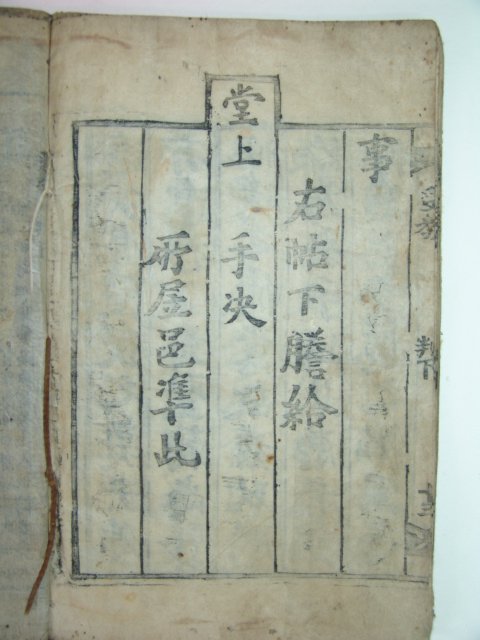 事
右帖下謄给
堂上 手决
所屋邑準此